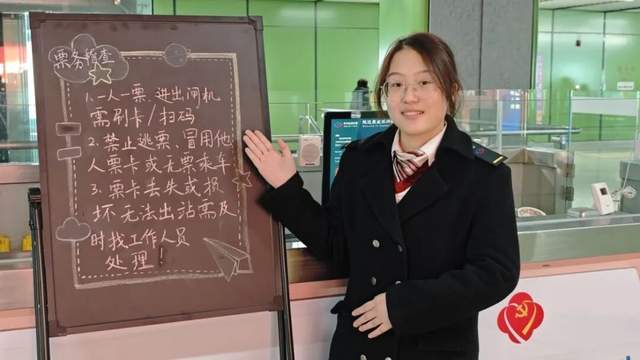 票务稽查
1.一人一票,进出闸机
需刷卡/扫码
2.禁止逃票、冒用他
人票卡或无票乘车
3.票卡丢失或损
坏无法出站需及
时找工作人员
处理!